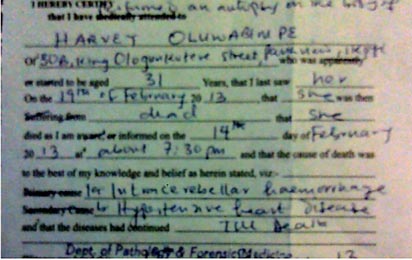 I HEREBY CERTIFY performed an autopsy on the body of
that I have medically attended to
HARVEY OLUWABIMPE
Of 30B, King Ologunkutere street, Parkview, Ikoyi who was apparently
or stated to be aged 31 Years, that I last saw her
On the 19th of February 2013 that she was then
Suffering from dead that she
died as I am aware or informed on the 19th day of February
2013 at about 7:30 pm and that the cause of death was
to the best of my knowledge and belief as herein stated, viz:-
Primary cause Ia Intracerebellar haemorrhage
Secondary Cause b Hypertensive heart disease
and that the diseases had continued Till Death
Dept. of Pathology & Forensic Medicine 13